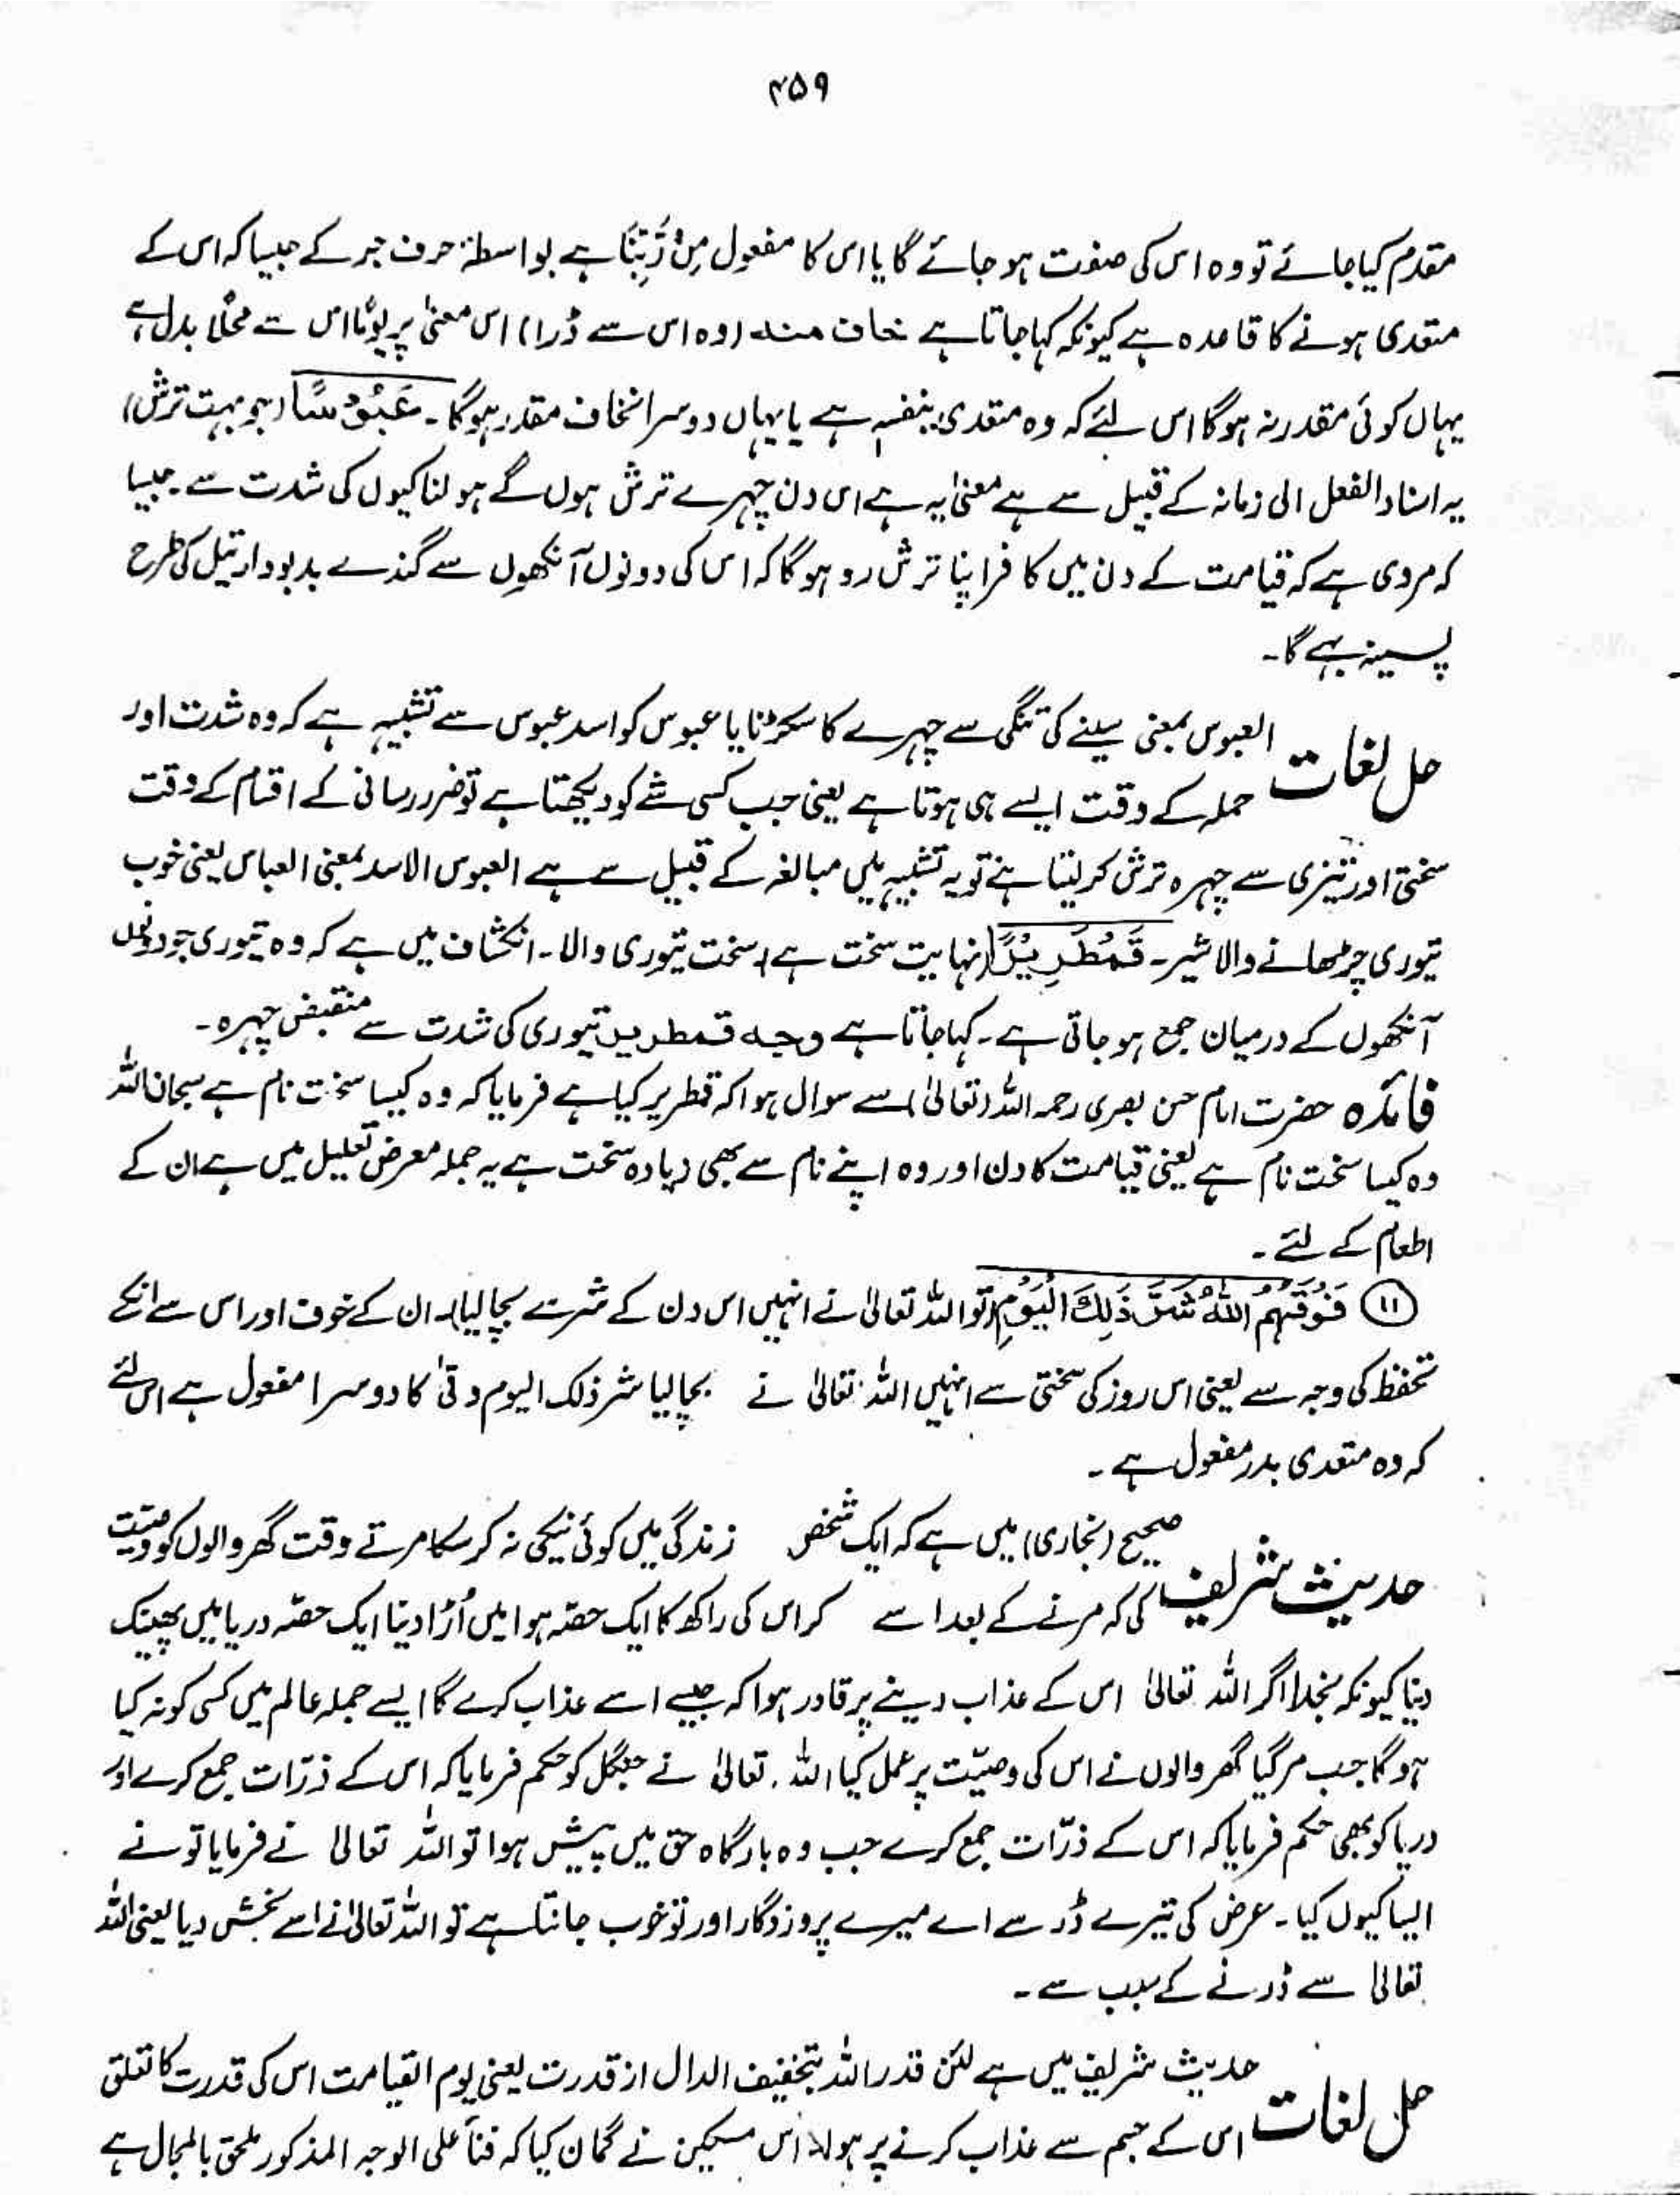 ۴۵۹
مقدم کیا جائے تو وہ اس کی صفت ہو جائے گا یا اس کا مفعول مِنْ رَّبِّنَا ہے بواسطۂ حرف جر کے جیسا کہ اس کے
متعدی ہونے کا قاعدہ ہے کیونکہ کہا جاتا ہے خاف منہ (وہ اس سے ڈرا) اس معنیٰ پر یومًا اس سے محلًا بدل ہے
یہاں کوئی مقدر نہ ہوگا اس لئے کہ وہ متعدی بنفسہٖ ہے یا یہاں دوسرا نخاف مقدر ہوگا۔ عَبُوْسًا (جو بہت ترش)
یہ اسناد الفعل الی زمانہ کے قبیل سے ہے معنیٰ یہ ہے اس دن چہرے ترش ہوں گے ہولناکیوں کی شدت سے۔ جیسا
کہ مروی ہے کہ قیامت کے دن میں کافر اپنا ترش رو ہوگا کہ اس کی دونوں آنکھوں سے گندے بدبودار تیل کی طرح
پسینہ بہے گا۔
حل لغات العبوس بمعنی سینے کی تنگی سے چہرے کا سکڑنا یا عبوس کو اسد عبوس سے تشبیہ ہے کہ وہ شدت اور
حملہ کے وقت ایسے ہی ہوتا ہے یعنی جب کسی شے کو دیکھتا ہے تو ضرر رسانی کے اقسام کے وقت
سختی اور تیزی سے چہرہ ترش کر لیتا ہے تو یہ تشبیہ میں مبالغہ کے قبیل سے ہے العبوس الاسد بمعنی العباس یعنی خوب
تیوری چڑھانے والا شیر۔ قَمْطَرِیْرًا (نہایت سخت ہے) سخت تیوری والا۔ الکشاف میں ہے کہ وہ تیوری جو دونوں
آنکھوں کے درمیان جمع ہو جاتی ہے۔ کہا جاتا ہے وجہ قمطریر تیوری کی شدت سے منقبض چہرہ۔
فائدہ حضرت امام حسن بصری رحمہ اللہ (تعالیٰ) سے سوال ہوا کہ قمطریر کیا ہے فرمایا کہ وہ کیسا سخت نام ہے سبحان اللہ
وہ کیسا سخت نام ہے یعنی قیامت کا دن اور وہ اپنے نام سے بھی زیادہ سخت ہے یہ جملہ معرض تعلیل میں ہے ان کے
اطعام کے لئے۔
⑪ فَوَقٰہُمُ اللّٰہُ شَرَّ ذٰلِکَ الْیَوْمِ (تو اللہ تعالیٰ نے انہیں اس دن کے شر سے بچا لیا)۔ ان کے خوف اور اس سے انکے
تحفظ کی وجہ سے یعنی اس روز کی سختی سے انہیں اللہ تعالیٰ نے بچا لیا شر ذلک الیوم وقیٰ کا دوسرا مفعول ہے اس لئے
کہ وہ متعدی بدر مفعول ہے۔
حدیث شریف صحیح (بخاری) میں ہے کہ ایک شخص زندگی میں کوئی نیکی نہ کر سکا مرتے وقت گھر والوں کو وصیّت
کی کہ مرنے کے بعد اسے کر اس کی راکھ کا ایک حصّہ ہوا میں اُڑا دینا ایک حصّہ دریا میں پھینک
دینا کیونکہ بخدا اگر اللہ تعالیٰ اس کے عذاب دینے پر قادر ہوا کہ جیسے اسے عذاب کرے گا ایسے جملہ عالم میں کسی کو نہ کیا
ہوگا جب مر گیا گھر والوں نے اس کی وصیّت پر عمل کیا اللہ تعالیٰ نے جنگل کو حکم فرمایا کہ اس کے ذرّات جمع کرے اور
دریا کو بھی حکم فرمایا کہ اس کے ذرّات جمع کرے جب وہ بارگاہ حق میں پیش ہوا تو اللہ تعالیٰ نے فرمایا تو نے
ایسا کیوں کیا۔ عرض کی تیرے ڈر سے اے میرے پروردگار اور تو خوب جانتا ہے تو اللہ تعالیٰ نے اسے بخش دیا یعنی اللہ
تعالیٰ سے ڈرنے کے سبب سے۔
حل لغات حدیث شریف میں ہے لئن قدر اللہ بتخفیف الدال از قدرت یعنی یوم القیامت اس کی قدرت کا تعلق
اس کے جسم سے عذاب کرنے پر ہولا اس مسکین نے گمان کیا کہ فنأ علی الوجہ المذکور ملحق بالمحال ہے